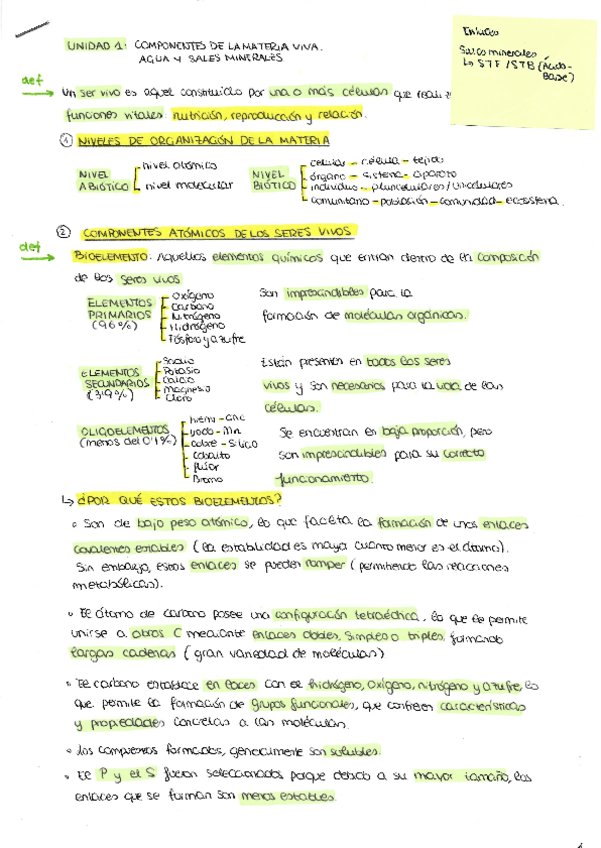 UNIDAD 1: COMPONENTES DE LA MATERIA VIVA.
AGUA Y SALES MINERALES
Enlaces
Sales minerales
↳ STF / STB (Ácido-
Base)
def
Un ser vivo es aquel constituido por una o más células que realiz
funciones vitales: nutrición, reproducción y relación.
① NIVELES DE ORGANIZACIÓN DE LA MATERIA
NIVEL ABIÓTICO
nivel atómico
nivel molecular
NIVEL BIÓTICO
celular - célula - tejido
órgano - sistema - aparato
individuo - pluricelulares / unicelulares
comunitario - población - comunidad - ecosistema.
② COMPONENTES ATÓMICOS DE LOS SERES VIVOS
def
BIOELEMENTO: Aquellos elementos químicos que entran dentro de la composición
de los seres vivos
ELEMENTOS PRIMARIOS (96%)
Oxígeno
Carbono
Nitrógeno
Hidrógeno
Fósforo y azufre
Son imprescindibles para la
formación de moléculas orgánicas.
ELEMENTOS SECUNDARIOS (3'9%)
Sodio
Potasio
Calcio
Magnesio
Cloro
Están presentes en todos los seres
vivos y son necesarios para la vida de las
células.
OLIGOELEMENTOS (menos del 0'1%)
hierro - cinc
yodo - Mn
cobre - Silicio
Cobalto
flúor
Bromo
Se encuentran en baja proporción, pero
son imprescindibles para su correcto
funcionamiento.
↳ ¿POR QUÉ ESTOS BIOELEMENTOS?
• Son de bajo peso atómico, lo que facilita la formación de unos enlaces
covalentes estables (la estabilidad es mayor cuanto menor es el átomo).
Sin embargo, estos enlaces se pueden romper (permitiendo las reacciones
metabólicas).
• El átomo de carbono posee una configuración tetraédrica, lo que le permite
unirse a otros C mediante enlaces dobles, simples o triples, formando
largas cadenas (gran variedad de moléculas)
• El carbono establece enlaces con el hidrógeno, oxígeno, nitrógeno y azufre, lo
que permite la formación de grupos funcionales, que confieren características
y propiedades concretas a las moléculas.
• Los compuestos formados, generalmente son solubles.
• El P y el S fueron seleccionados porque debido a su mayor tamaño, los
enlaces que se forman son menos estables.